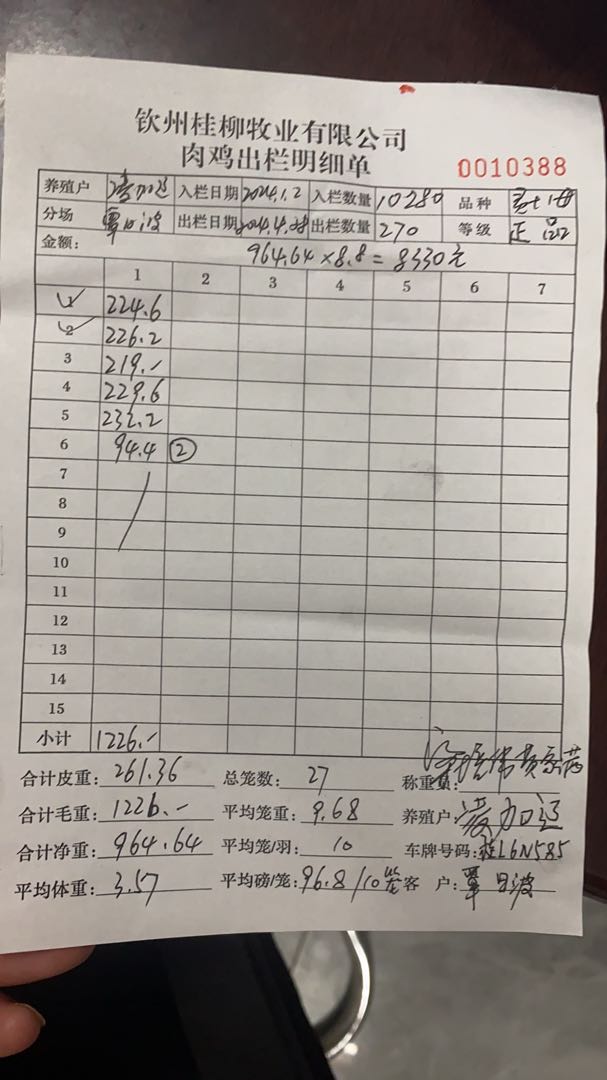 钦州桂柳牧业有限公司
肉鸡出栏明细单 0010388
养殖户 凌加运 入栏日期 2024.1.2 入栏数量 10280 品种
分场 覃日波 出栏日期 2024.4.28 出栏数量 270 等级 正品
金额: 964.64×8.8=8330元
1 2 3 4 5 6 7
1 224.6
2 226.2
3 219.-
4 229.6
5 232.2
6 94.4 ②
7
8
9
10
11
12
13
14
15
小计 1226.-
合计皮重: 261.36 总笼数: 27 称重员:
合计毛重: 1226.- 平均笼重: 9.68 养殖户: 凌加运
合计净重: 964.64 平均笼/羽: 10 车牌号码: 桂L6N585
平均体重: 3.57 平均磅/笼: 96.8/10 客 户: 覃日波